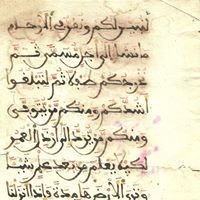 لنبين لكم ونقر في الارحام
ما نشاء الى اجل مسمى ثم
نخرجكم طفلا ثم لتبلغوا
اشدكم ومنكم من يتوفى
ومنكم من يرد الى ارذل العمر
لكيلا يعلم من بعد علم شيئا
وترى الارض هامدة فاذا انزلنا